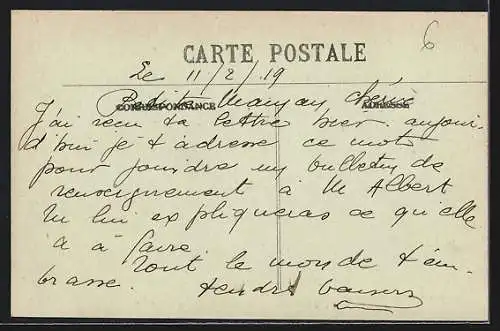 6
CARTE POSTALE
Le 11/2/19
CORRESPONDANCE ADRESSE
Petite Maman chérie
J'ai reçu ta lettre hier aujour-
d'hui je t'adresse ce mot
pour joindre un bulletin de
renseignement à M Albert
tu lui expliqueras ce qu'elle
a à faire
Tout le monde t'em-
brasse. tendres baisers